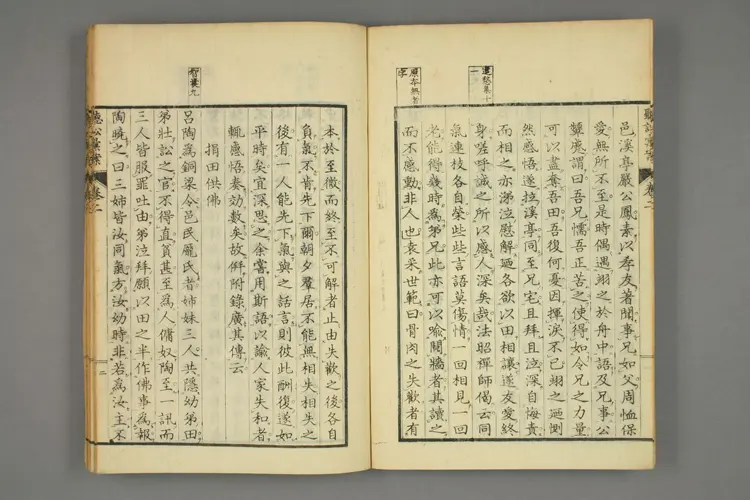 邑溪亭嚴公鳳素以孝友著聞事兄如父周恤保
愛無所不至是時偶遇翊之於舟中語及兄事公
顰蹙謂曰吾兄懦吾正苦之使得如令兄之力量
可以盡奪吾田吾復何憂因揮涙不已翊之廼惻
然感悟遂拉溪亭同至兄宅且拜且泣深自悔責
而相之亦涕泣慰解廼各欲以田相讓遂友愛終
身嗟呼誠之所以感人深矣哉法昭禪師偈云同
氣連枝各自榮些些言語莫傷情一回相見一回
老能得幾時為弟兄此亦可以喻鬩牆者其讀之
而不感動非人也袁采世範曰骨肉之失歡者有
遣愁集十一
原本無智字
本於至微而終至不可解者止由失歡之後各自
負氣不肯先下爾朝夕羣居不能無相失相失之
後有一人能先下氣與之話言則彼此酬復遂如
平時矣宜深思之余嘗用斯語以諭人家失和者
輒感悟奏効數矣故併附錄廣其傳云
捐田供佛
呂陶為銅梁令邑民龐氏者姉妹三人共隱幼弟田
弟壯訟之官不得直貧甚至為人傭奴陶至一訊而
三人皆服罪吐田弟泣拜願以田之半作佛事為報
陶曉之曰三姉皆汝同氣方汝幼時非若為汝主不
智囊九
卷二